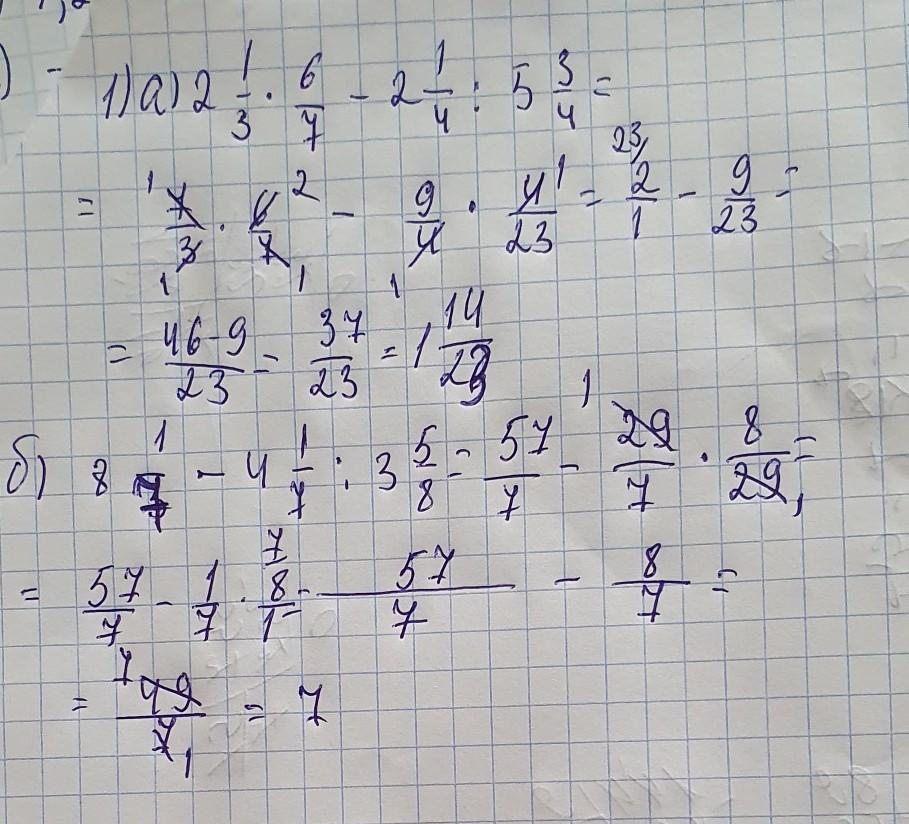 1) а) 2 1/3 · 6/7 - 2 1/4 : 5 3/4 =
= 7/3 · 6/7 - 9/4 · 4/23 = 2/1 - 9/23 =
= 46-9/23 = 37/23 = 1 14/23
б) 8 1/7 - 4 1/7 : 3 5/8 = 57/7 - 29/7 · 8/29 =
= 57/7 - 1/7 · 8/1 = 57/7 - 8/7 =
= 49/7 = 7